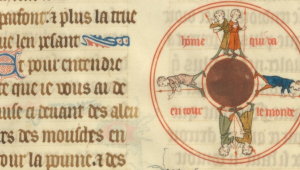 parfont. ⁊ plus la true
que len pesant
Et pour entendre
ce que ie vous ai de
uise ci deuant des aleu
res des mousches en
tour la poume. ⁊ des
home qui va
en tour le monde